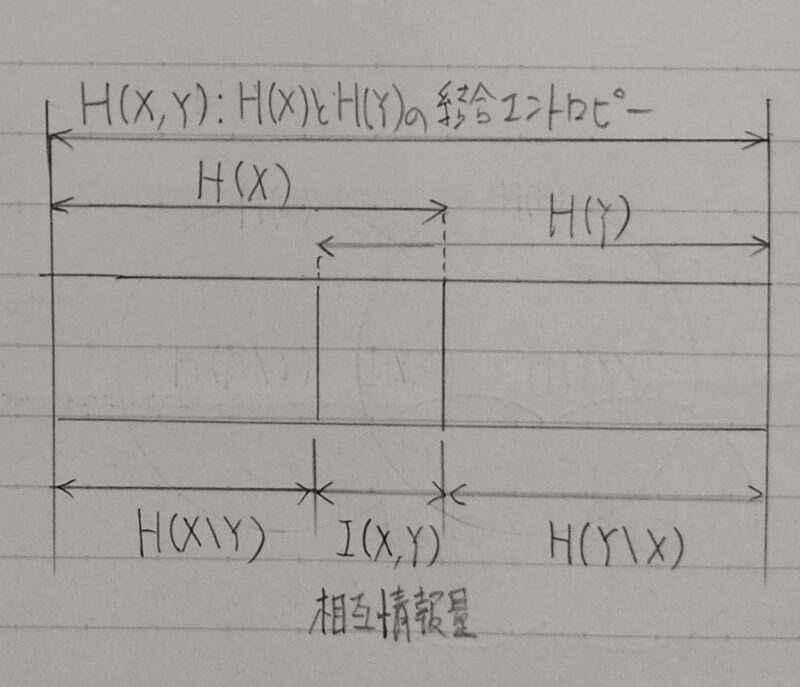 H(X,Y):H(X)とH(Y)の結合エントロピー
H(X)
H(Y)
H(X\Y)
I(X,Y)
H(Y\X)
相互情報量